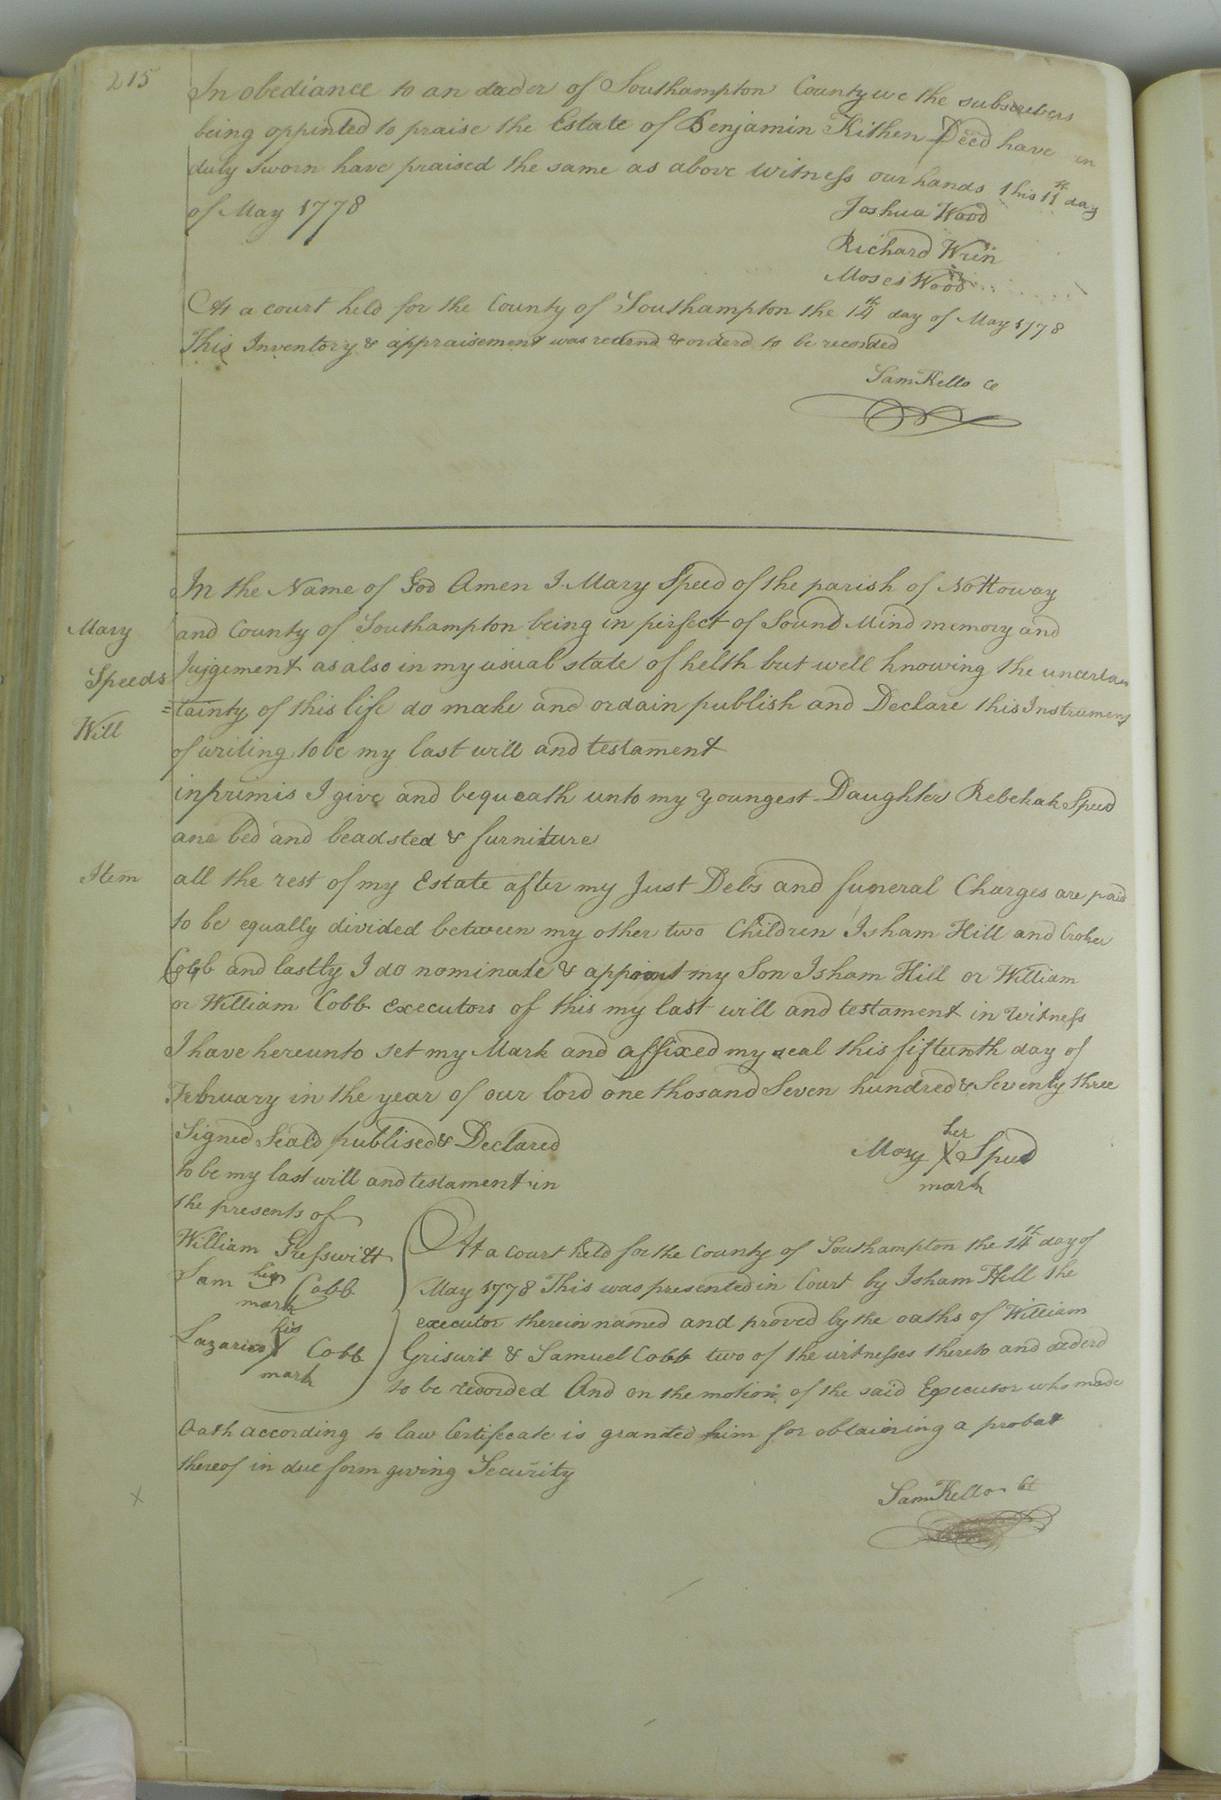 215
In obediance to an dader of Southampton County we the subscribers
being oppinted to praise the Estate of Benjamin Kithen Deed have
duly Sworn have praised the same as above witness our hands this 11th day
of May 1778
Joshua Wood
Richard Wren
Moses Wood
At a court held for the County of Southampton the 14th day of May 1778
This Inventory & appraisement was returnd & orderd to be recorded
Sam Kello Cl
In the Name of God Amen I Mary Speed of the parish of Nottoway
Mary
and County of Southampton being in pirfect of Sound Mind memory and
Speeds
Jujgement as also in my usual state of helth but well knowing the uncertan
Will
=tainty of this life do make and ordain publish and Declare this Instrument
of writing to be my last will and testament
inprimis I give and bequeath unto my youngest Daughter Rebekah Speed
one bed and beadsted & furniture
Item
all the rest of my Estate after my Just Debs and funeral Charges are paid
to be equally divided between my other two Children Isham Hill and Croker
Cobb and lastly I do nominate & appoint my Son Isham Hill or William
or William Cobb executors of this my last will and testament in witness
I have hereunto set my Mark and affixed my seal this fifteenth day of
February in the year of our lord one thosand Seven hundred & Seventy three
Signed Seald publised & Declared
to be my last will and testament in
the presents of
her
Mary X Speed
mark
William Gresswitt
Sam his Cobb
mark
his
Lazarus X Cobb
mark
At a court held for the County of Southampton the 14th day of
May 1778 This was presented in Court by Isham Hill the
executor therein named and proved by the oaths of William
Griswit & Samuel Cobb two of the witnesses thereto and orderd
to be recorded And on the motion of the said Executor who made
Oath according to law Certificate is granted him for obtaining a probat
thereof in due form giving Security
X
Sam Kello Cl